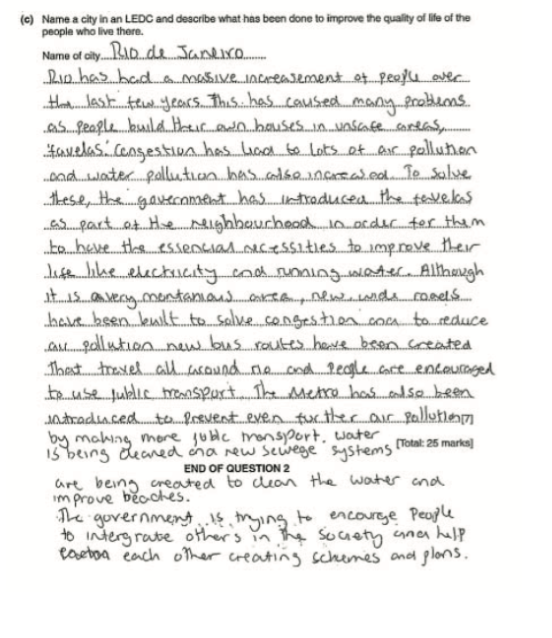 (c) Name a city in an LEDC and describe what has been done to improve the quality of life of the
people who live there.
Name of city... Rio de Janeiro
Rio has had a masive increasement of people over
the last few years. This has caused many problems
as people build their own houses in unsafe areas,
'favelas'. Congestion has lead to lots of air pollution
and water pollution has also increased. To solve
these, the government has introduced the favelas
as part of the neighbourhood in order for them
to have the essencial necessities to improve their
life like electricity and running water. Although
it is a very montanious area, new roads
have been built to solve congestion and to reduce
air pollution new bus routes have been created
that travel all around rio and people are encouraged
to use public transport. The Metro has also been
introduced to prevent even further air pollution
by making more public transport. water
[Total: 25 marks]
is being cleaned and new sewege systems
END OF QUESTION 2
are being created to clean the water and
improve beaches.
The government is trying to encourage people
to intergrate others in the society and help
each other creating schemes and plans.